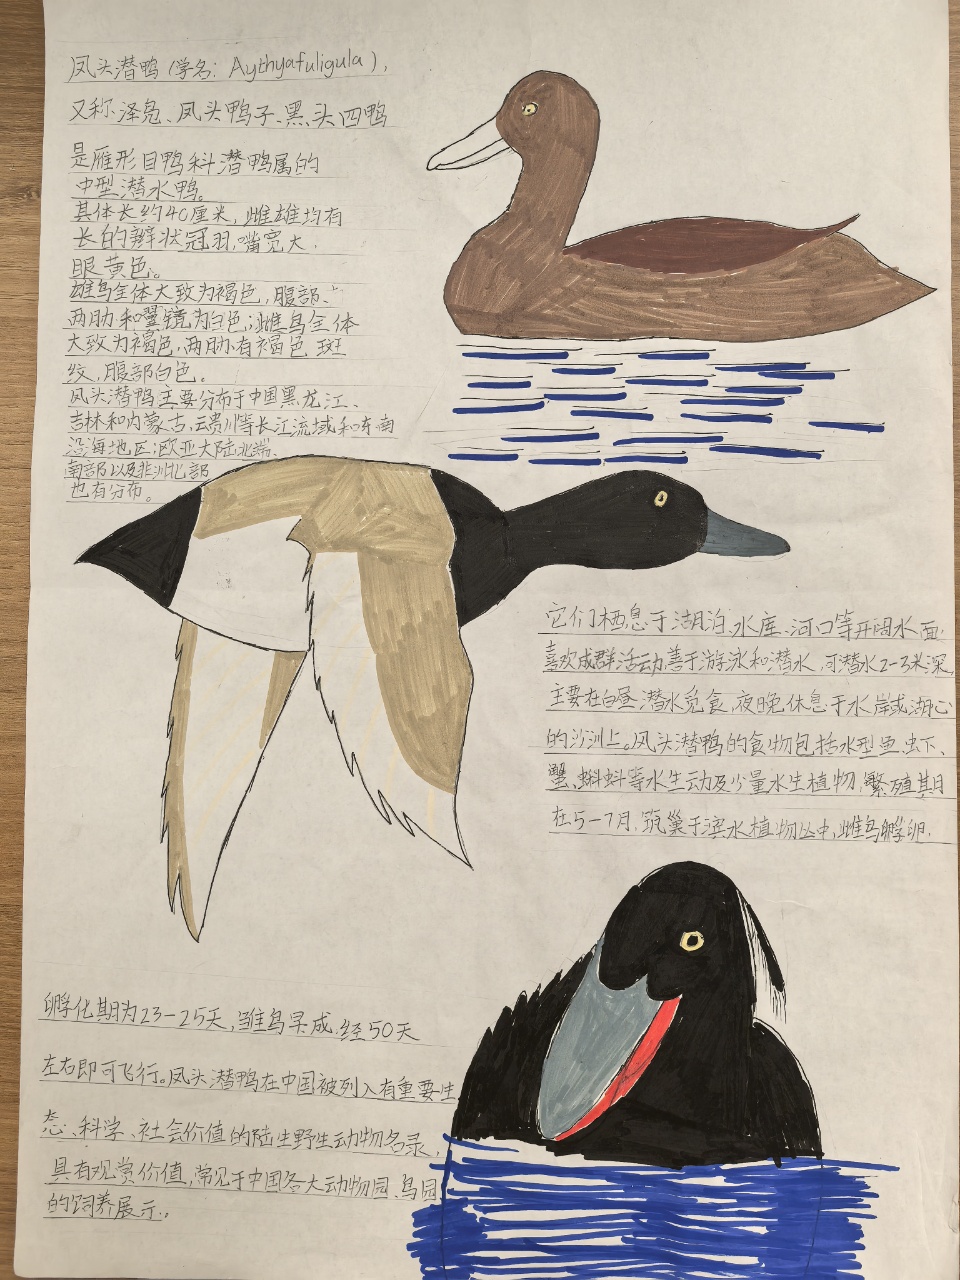 凤头潜鸭(学名: Aythyafuligula),
又称泽凫、凤头鸭子、黑头四鸭
是雁形目鸭科潜鸭属的
中型潜水鸭。
其体长约40厘米,雌雄均有
长的辫状冠羽,嘴宽大.
眼黄色。
雄鸟全体大致为褐色,腹部、
两肋和翼镜为白色;雌鸟全体
大致为褐色,两肋有褐色斑
纹,腹部白色。
凤头潜鸭主要分布于中国黑龙江、
吉林和内蒙古,云贵川等长江流域和东南
沿海地区;欧亚大陆北端、
南部以及非洲北部
也有分布。
它们栖息于湖泊、水库、河口等开阔水面.
喜欢成群活动,善于游泳和潜水,可潜水2-3米深,
主要在白昼潜水觅食,夜晚休息于水岸或湖心
的沙洲上。凤头潜鸭的食物包括水型鱼、虾、
蟹、蝌蚪等水生动及少量水生植物,繁殖期
在5-7月,筑巢于滨水植物丛中,雌鸟孵卵.
孵化期为23-25天,雏鸟早成,经50天
左右即可飞行。凤头潜鸭在中国被列入有重要生
态、科学、社会价值的陆生野生动物名录,
具有观赏价值,常见于中国各大动物园、鸟园
的饲养展示。